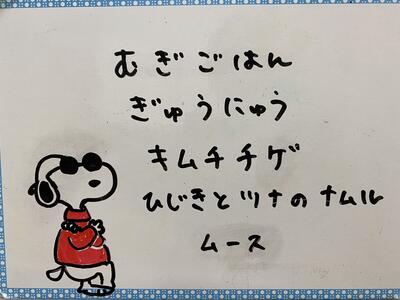 むぎごはん
ぎゅうにゅう
キムチチゲ
ひじきとツナのナムル
ムース